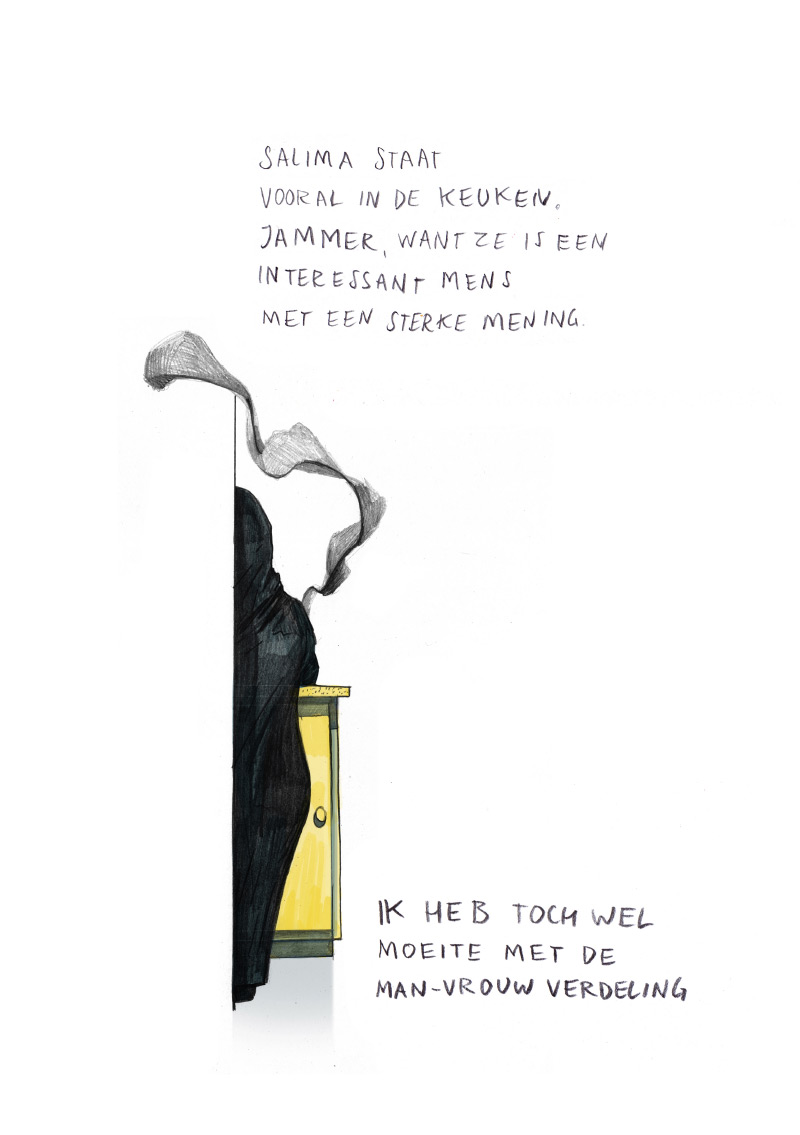 SALIMA STAAT
VOORAL IN DE KEUKEN.
JAMMER, WANT ZE IS EEN
INTERESSANT MENS
MET EEN STERKE MENING.
IK HEB TOCH WEL
MOEITE MET DE
MAN-VROUW VERDELING